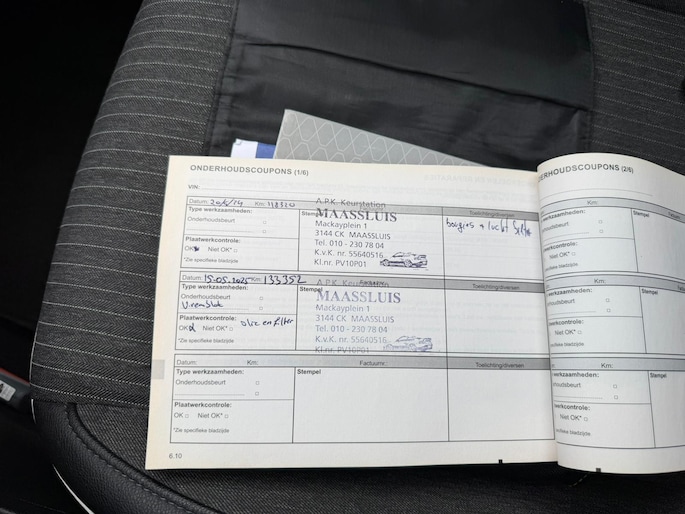 ONDERHOUDSCOUPONS (1/6)
VIN:
Datum: Km: 118320
Type werkzaamheden:
Onderhoudsbeurt
Plaatwerkcontrole:
OK Niet OK*
*Zie specifieke bladzijde
Stempel
A.P.K. Keurstation
MAASSLUIS
Mackayplein 1
3144 CK MAASSLUIS
Tel. 010 - 230 78 04
K.v.K. nr. 55640516
Kl.nr. PV10P01
Toelichting/diversen
bougies + lucht filter
Datum: 15-05-2025 Km: 133352
Type werkzaamheden:
Onderhoudsbeurt
Plaatwerkcontrole:
OK Niet OK* olie en filter
*Zie specifieke bladzijde
Stempel
A.P.K. Keurstation
MAASSLUIS
Mackayplein 1
3144 CK MAASSLUIS
Tel. 010 - 230 78 04
K.v.K. nr. 55640516
Kl.nr. PV10P01
Toelichting/diversen
Datum: Km: Factuurnr.: Toelichting/diversen
Type werkzaamheden:
Onderhoudsbeurt
Plaatwerkcontrole:
OK Niet OK*
*Zie specifieke bladzijde
Stempel
6.10
ONDERHOUDSCOUPONS (2/6)
Km:
werkzaamheden:
Onderhoudsbeurt
Plaatwerkcontrole:
Niet OK*
specifieke bladzijde
Stempel
Km:
werkzaamheden:
Onderhoudsbeurt
Plaatwerkcontrole:
Niet OK*
specifieke bladzijde
Stempel
Km:
werkzaamheden:
Onderhoudsbeurt
Plaatwerkcontrole:
Niet OK*
specifieke bladzijde
Stempel